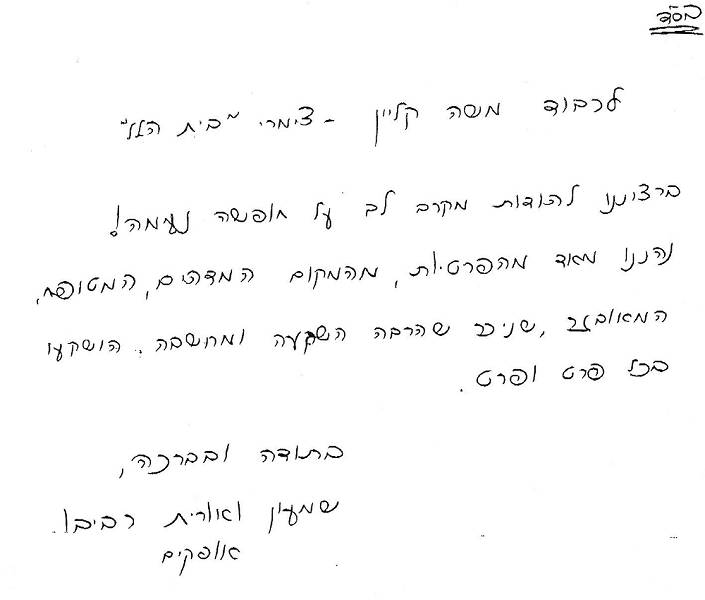 בס"ד
לכבוד משה קליין - צימרי "בית הלל"
ברצוננו להודות מקרב לב על חופשה נעימה!
נהננו מאוד מהפרטיות, מהמקום המדהים, המטופח,
המאובזר, שניכר שהרבה השקעה ומחשבה הושקעו
בכל פרט ופרט.
בתודה ובברכה,
שמעון ואורית רביבו.
אופקים